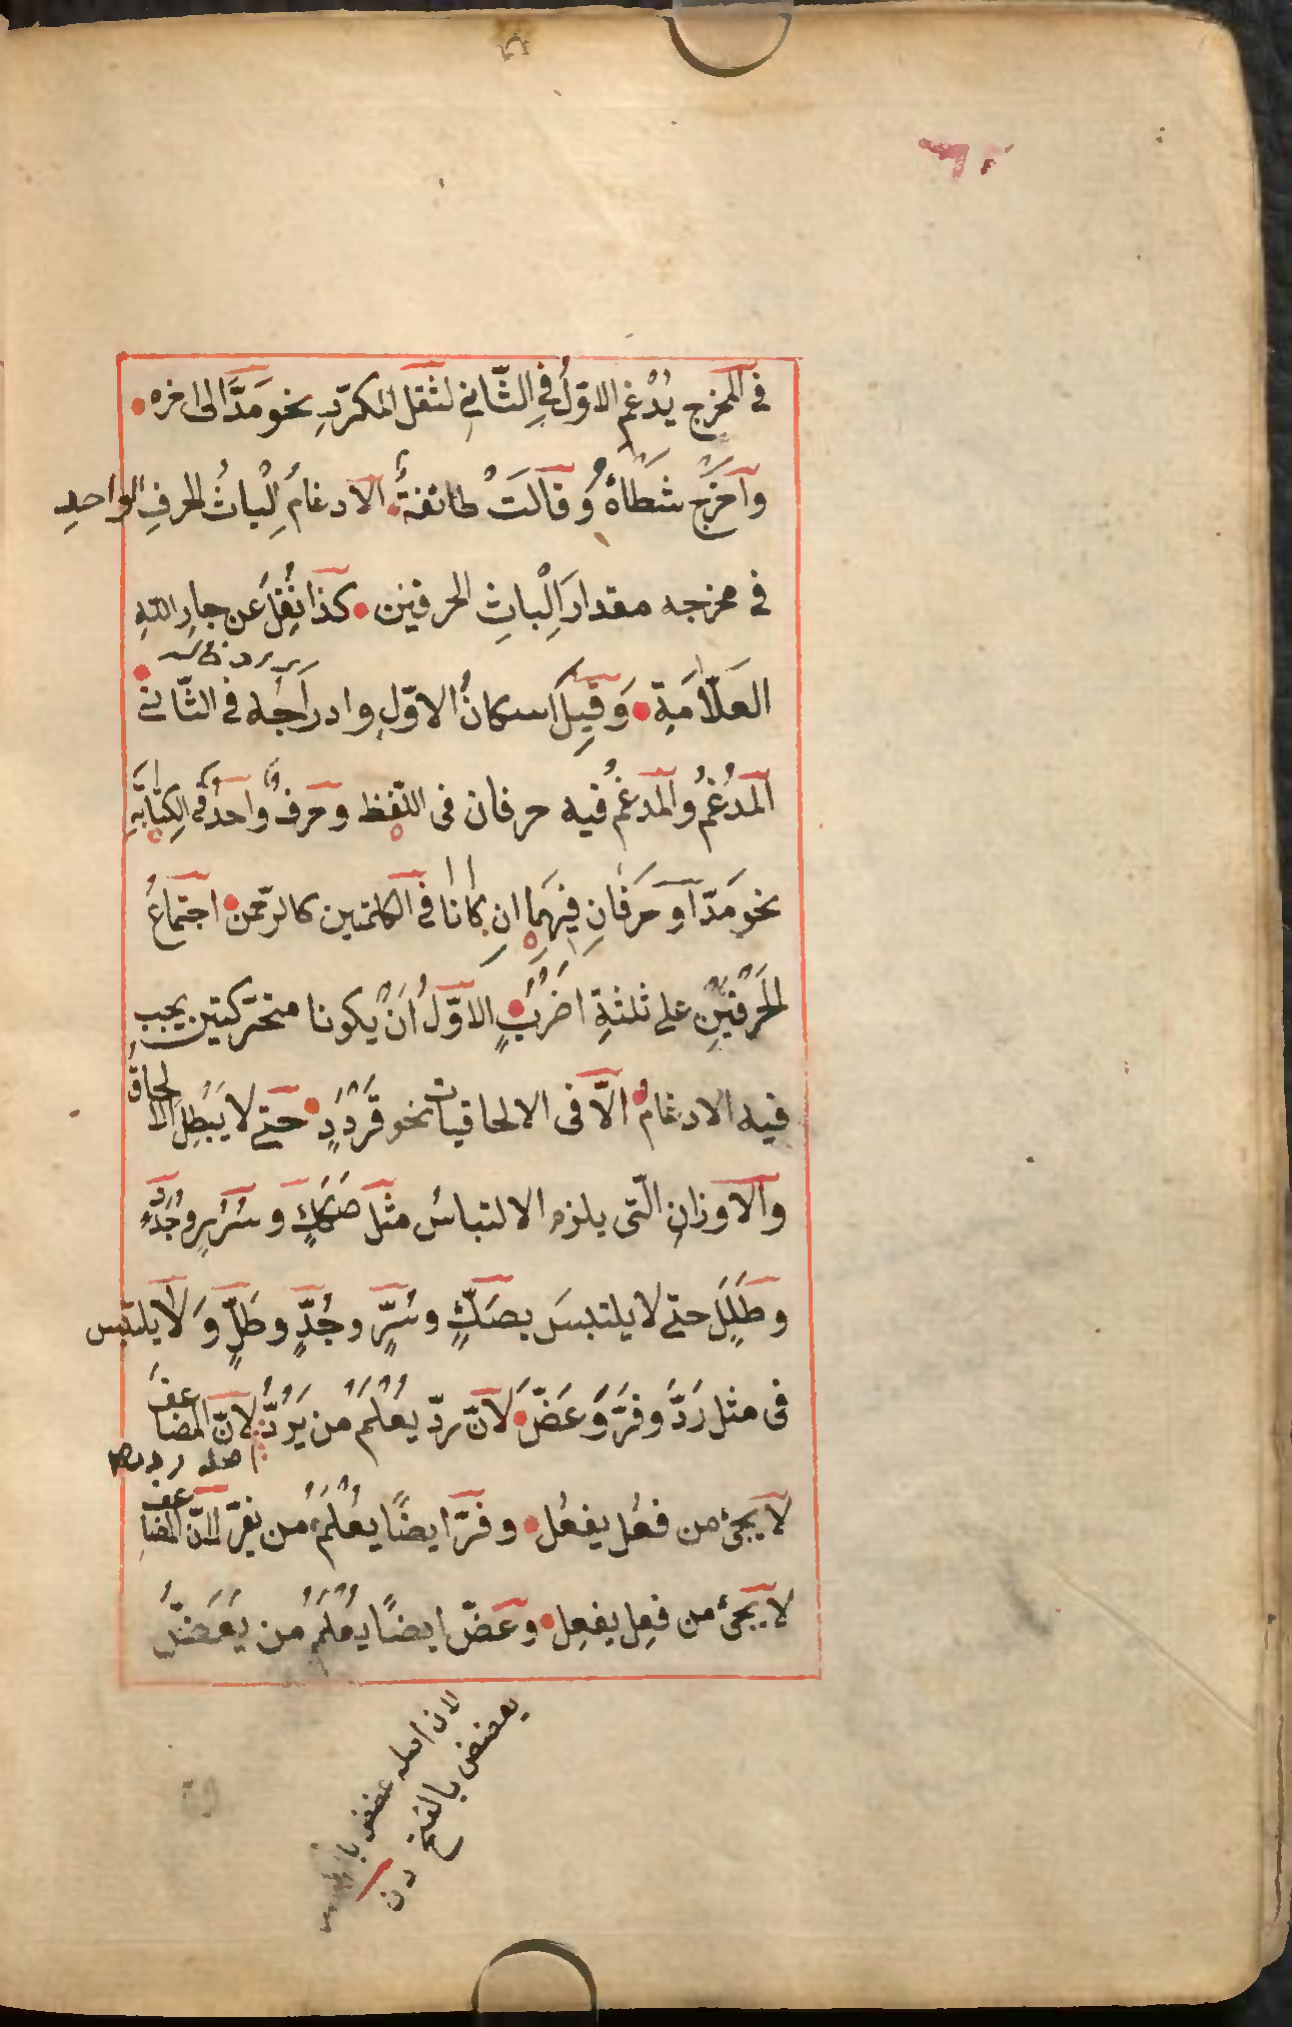 فى المخرج يُدْغم الاوّلُ فِى الثّانِى لثقل المكرّرِ نحو مَدَّ الى اخره
وَاخرَج شَطْأَهُ وَقالَتْ طائفةٌ الادغامُ اِلْباثُ الحرفِ الواحدِ
فى مخرجه مقدارَ اِلْباثِ الحرفين كذا نُقِلَ عن جارِ اللّهِ
العَلّامَةِ وَقِيلَ اسكانُ الاوّلِ وادراجُه فى الثّانى
المُدْغَمُ والمُدغمُ فيه حرفان فى اللّفظ وحرفٌ واحدٌ فى الكِتابَةِ
نحو مَدّ اَو حَرفانِ فِيهِما ان كانا فى الكلمتين كالرّحمن اجتماعُ
الحَرْفَيْنِ على ثلثةِ اَضْرُبٍ الاوّلُ اَنْ يكونا متحرّكتين يجب
فيه الادغامُ الّا فى الالحاقيات نحو قَرْدَدٍ حتى لا يَبْطِلَ الالحاق
والاوزانِ الّتى يلزم الالتباسُ مثل صَكَكٍ وسُرُرٍ وجُدَدٍ
وطَلَلٍ حتى لا يلتبسَ بصَكٍّ وسُرٍّ وجُدٍّ وطَلٍّ وَلا يلتبس
فى مثل رَدَّ وفَرَّ وَعَضَّ لانّ ردّ يُعْلَمُ من يَرُدُّ لانّ المضاعفَ
لا يجئ من فعُل يفعُل وفرّ ايضًا يُعْلَمُ من يفرّ لانّ المضاعف
لا يجئ من فعِل يفعِل وعَضّ ايضًا يُعْلَمُ من يَعَضُّ
لان اصله عضض
يعضض بالفتح